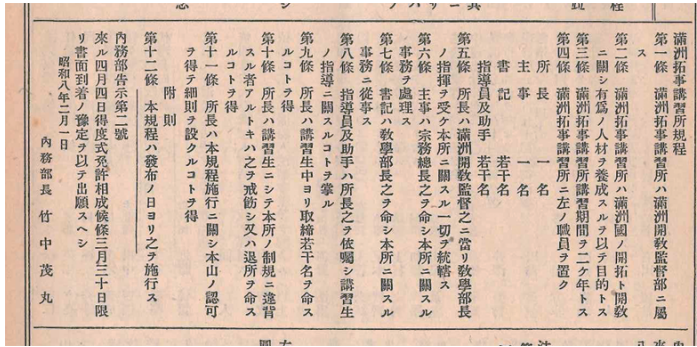 滿洲拓事講習所規程
第一條　滿洲拓事講習所ハ滿洲開教監督部ニ屬
ス
第二條　滿洲拓事講習所ハ滿洲國ノ開拓ト開教
ニ關シ有爲ノ人材ヲ養成スルヲ以テ目的トス
第三條　滿洲拓事講習所講習期間ヲ二ケ年トス
第四條　滿洲拓事講習所ニ左ノ職員ヲ置ク
所長　一名
主事　一名
書記　若干名
指導員及助手　若干名
第五條　所長ハ滿洲開教監督之ニ當リ教學部長
ノ指揮ヲ受ケ本所ニ關スル一切ヲ統轄ス
第六條　主事ハ宗務總長之ヲ命シ本所ニ關スル
事務ヲ處理ス
第七條　書記ハ教學部長之ヲ命シ本所ニ關スル
事務ニ從事ス
第八條　指導員及助手ハ所長之ヲ依囑シ講習生
ノ指導ニ關スルコトヲ掌ル
第九條　所長ハ講習生中ヨリ取締若干名ヲ命ス
ルコトヲ得
第十條　所長ハ講習生ニシテ本所ノ制規ニ違背
スル者アルトキハ之ヲ戒飭シ又ハ退所ヲ命ス
ルコトヲ得
第十一條　所長ハ本規程施行ニ關シ本山ノ認可
ヲ得テ細則ヲ設クルコトヲ得
附則
第十二條　本規程ハ發布ノ日ヨリ之ヲ施行ス
內務部吿示第二號
來ル四月四日得度式免許相成候條三月三十日限
リ書面到着ノ豫定ヲ以テ出願スヘシ
昭和八年二月一日
內務部長　竹中茂丸